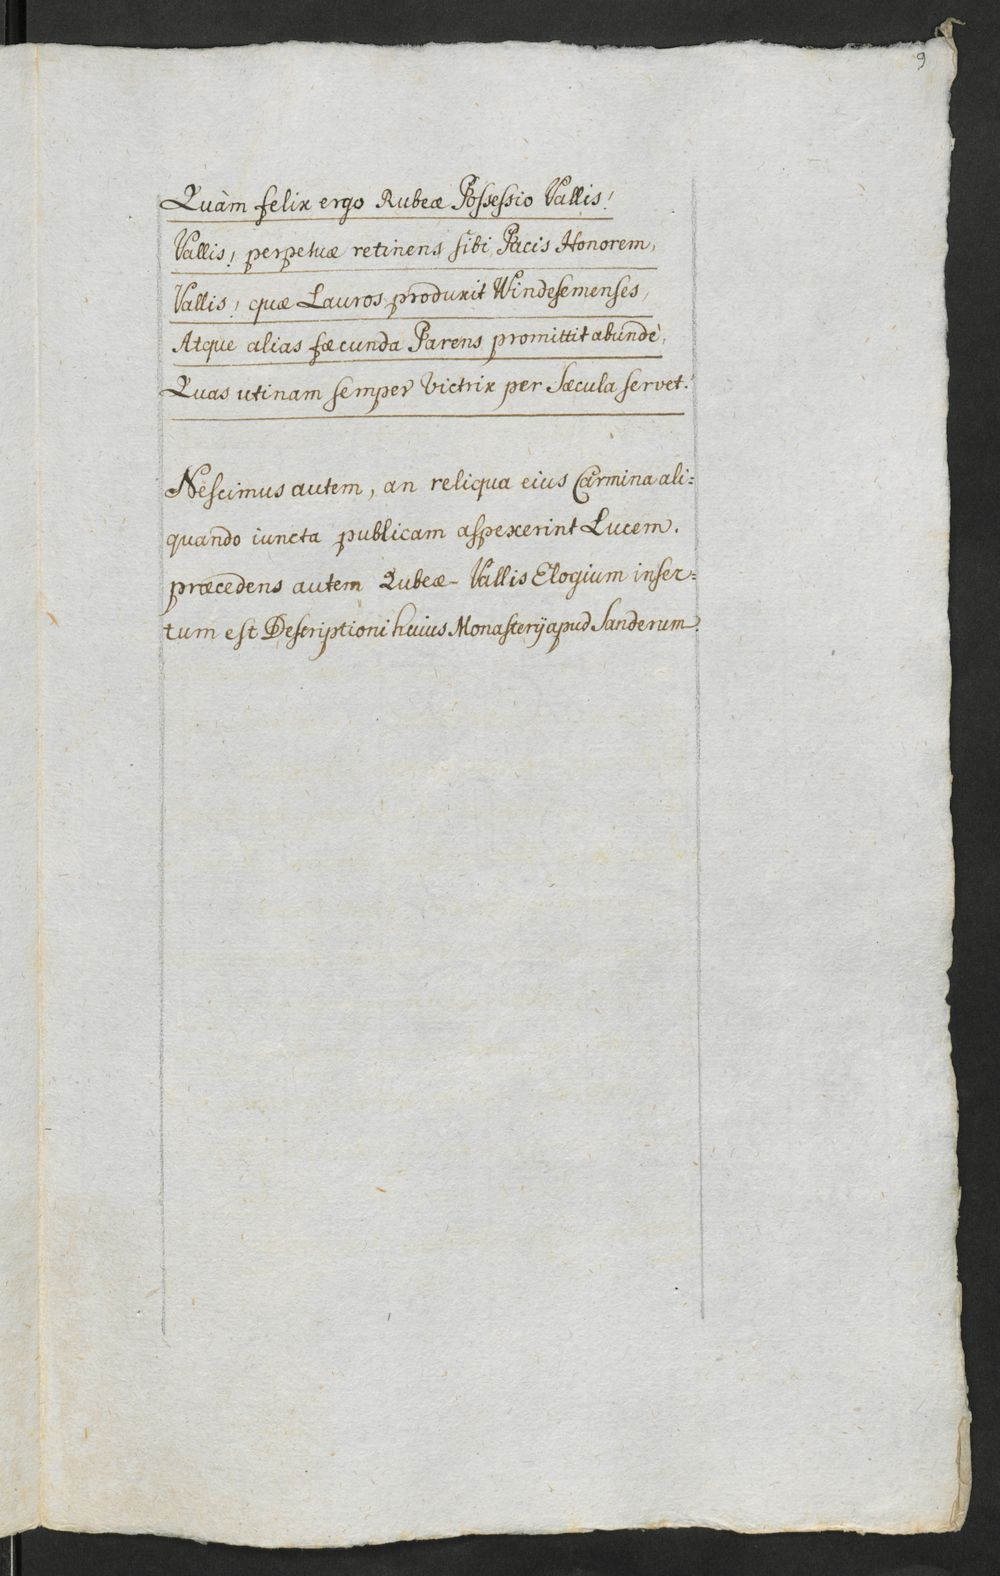 9
Quàm felix ergo Rubeæ Possessio Vallis!
Vallis! perpetuæ retinens sibi Pacis Honorem,
Vallis! quæ Lauros produxit Windesemenses,
Atque alias fæcunda Parens promittit abundè,
Quas utinam semper Victrix per Sæcula servet!
Nescimus autem, an reliqua eius Carmina ali=
quando iuncta publicam aspexerint Lucem.
præcedens autem Rubeæ-Vallis Elogium inser=
tum est Descriptioni huius Monasterij apud Sanderum.